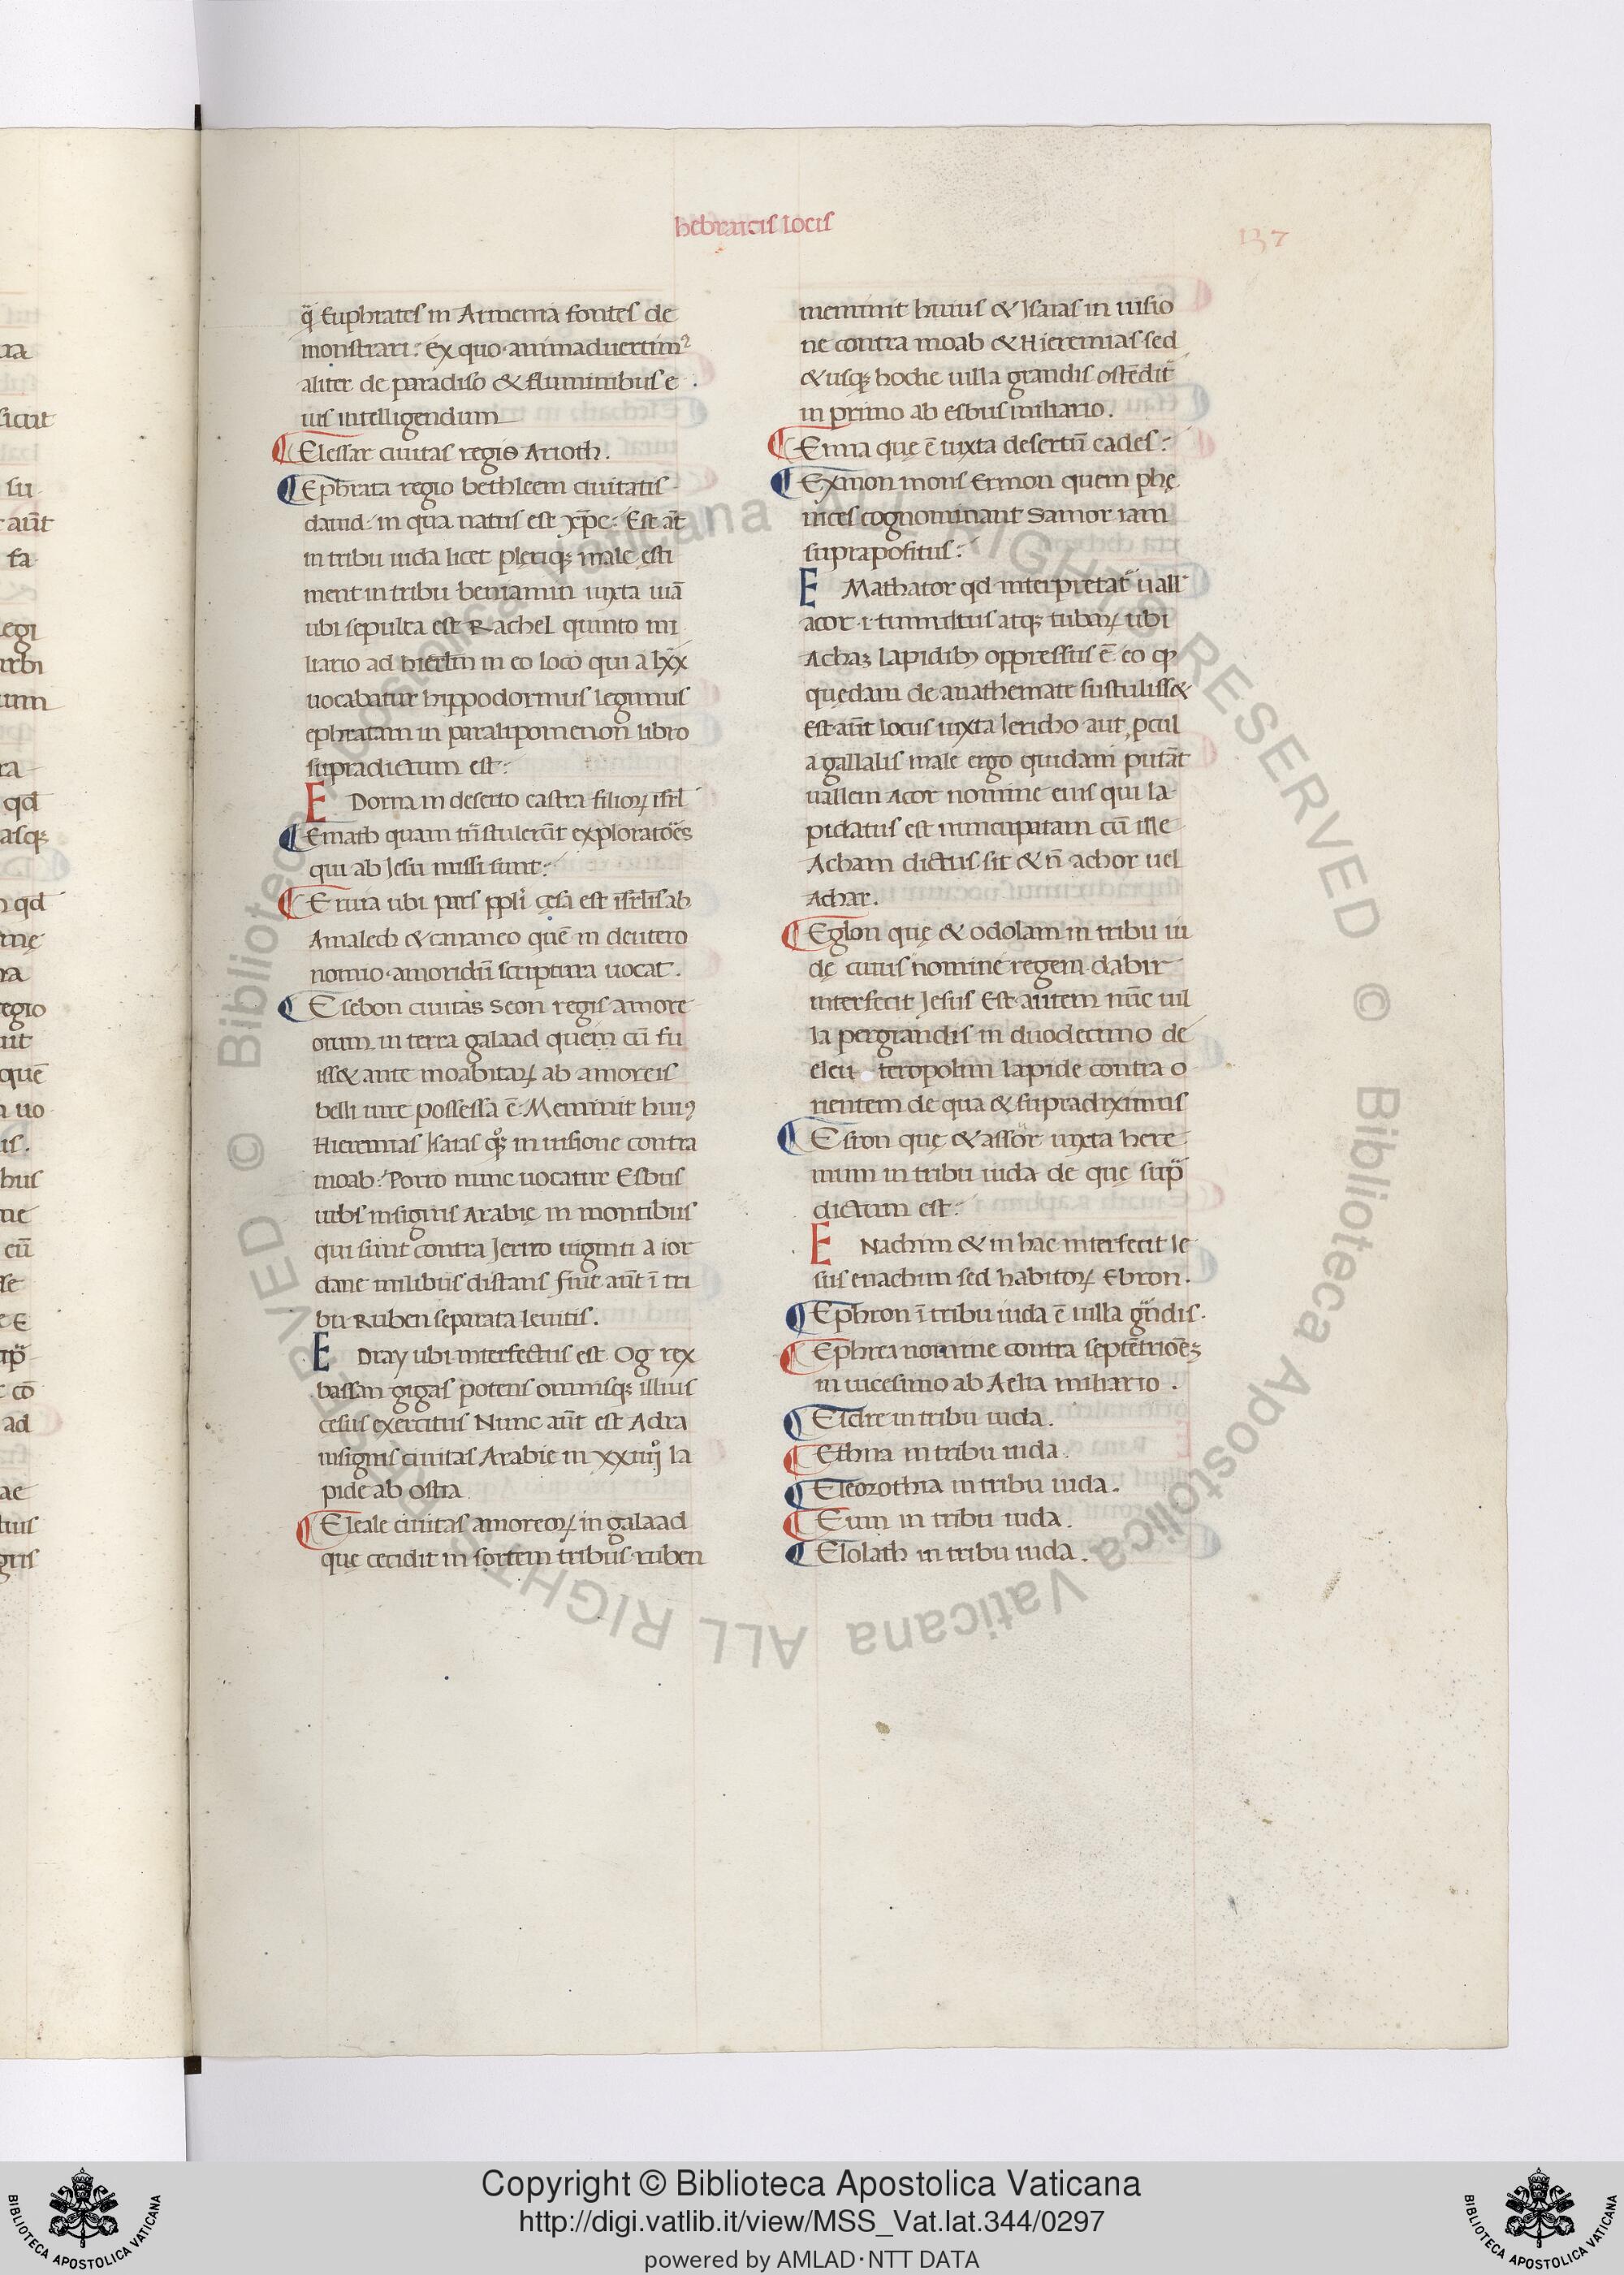 hebraicis locis
137
q̄ Euphrates in Armenia fontes de
monstrari. Ex quo animaduertim᷒
aliter de paradiso & fluminibus e
ius intelligendum
¶ Elessar ciuitas regis Arioth.
¶ Ephrata regio bethleem ciuitatis
dauid. in qua natus est xp̄c. Est aūt
in tribu iuda licet pleriq; male esti
ment in tribu beniamin iuxta uiā
ubi sepulta est Rachel quinto mi
liario ad hierl̄m in eo loco qui a lxx
uocabatur hippodormus legimus
ephratam in paralipomenon libro
supradictum est:
E Doma in deserto castra filioꝝ isr̄l
¶ Emath quam trāstulerūt exploratōes
qui ab Iesu missi sunt:
¶ Eruta ubi pars ppl̄i cęsa est isrl̄is ab
Amalech & cananeo quē in deutero
nomio amoridū scriptura uocat.
¶ Esebon ciuitas Seon regis amore
orum in terra galaad quem cū fu
iss& ante moabitaꝝ ab amoreis
belli iure possessa ē. Meminit huiꝰ
Hieremias Isaias qꝫ in uisione contra
moab. Porro nunc uocatur Esbus
urbs insignis Arabię in montibus
qui sunt contra Jerico uiginti a ior
dane milibus distans fuit aūt ī tri
bu Ruben separata leuitis.
E Dray ubi interfectus est Og rex
bassan gigas potens omnisq; illius
cesus exercitus Nunc aūt est Adra
insignis ciuitas Arabie in xxiiijº la
pide ab ostra
¶ Eleale ciuitas amoreoꝝ in galaad
que cecidit in sortem tribus ruben
meminit huius & Isaias in uisio
ne contra moab & Hieremias sed
& usq; hodie uilla grandis ostēdit᷑
in primo ab esbus miliario.
¶ Enna que ē iuxta desertū cades:
¶ Exmon mons Ermon quem phę
nices cognominant Samor iam
suprapositus:
E Mathator qd interpretat᷑ uall
acor .i. tumultus atq; tubaꝝ ubi
Achaz lapidibꝫ oppressus ē eo qꝫ
quędam de anathemate sustuliss&
est aūt locus iuxta Iericho aut ꝓcul
a gallalis male ergo quidam putāt
uallem Acor nomine eius qui la
pidatus est nuncupatam cū ille
Acham dictus sit & n̄ achor uel
Achar.
¶ Eglon quę & odolam in tribu iu
dę cuius nomine regem dabir
interfecit Jesus Est autem nūc uil
la pergrandis in duodecimo de
eleu teropolim lapide contra o
rientem de qua & supradiximus
¶ Esron quę & assor iuxta here
mum in tribu iuda de que sup̄
dictum est:
E Nachim & in hac interfecit Ie
sus enachim sed habitoꝝ Ebron.
¶ Ephron ī tribu iuda ē uilla gr̄ndis.
¶ Ephrea nomine contra septētrioēs
in uicesimo ab Aelia miliario.
¶ Eldre in tribu iuda.
¶ Ethna in tribu iuda.
¶ Eleozothia in tribu iuda.
¶ Eum in tribu iuda.
¶ Elolath in tribu iuda.
Copyright © Biblioteca Apostolica Vaticana
http://digi.vatlib.it/view/MSS_Vat.lat.344/0297
powered by AMLAD·NTT DATA
BIBLIOTECA APOSTOLICA VATICANA
BIBLIOTECA APOSTOLICA VATICANA